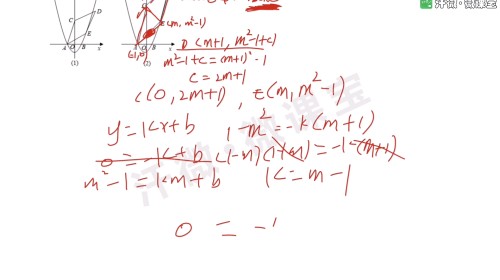 C
D
E
A
O
B
x
(1)
E(m, m²-1)
(-1,0)
A
B
x
(2)
D(m+1, m²-1+c)
m²-1+c=(m+1)²-1
c=2m+1
C(0,2m+1), E(m,m²-1)
y=kx+b 1-m²=-k(m+1)
0=-k+b (1-m)(1+m)=-k(m+1)
m²-1=km+b k=m-1
0 = -1